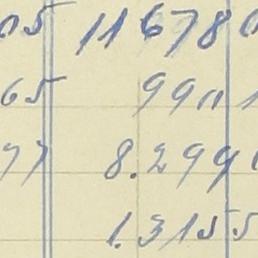 05 11678 0
65 9911 1
77 8.299
1.3155